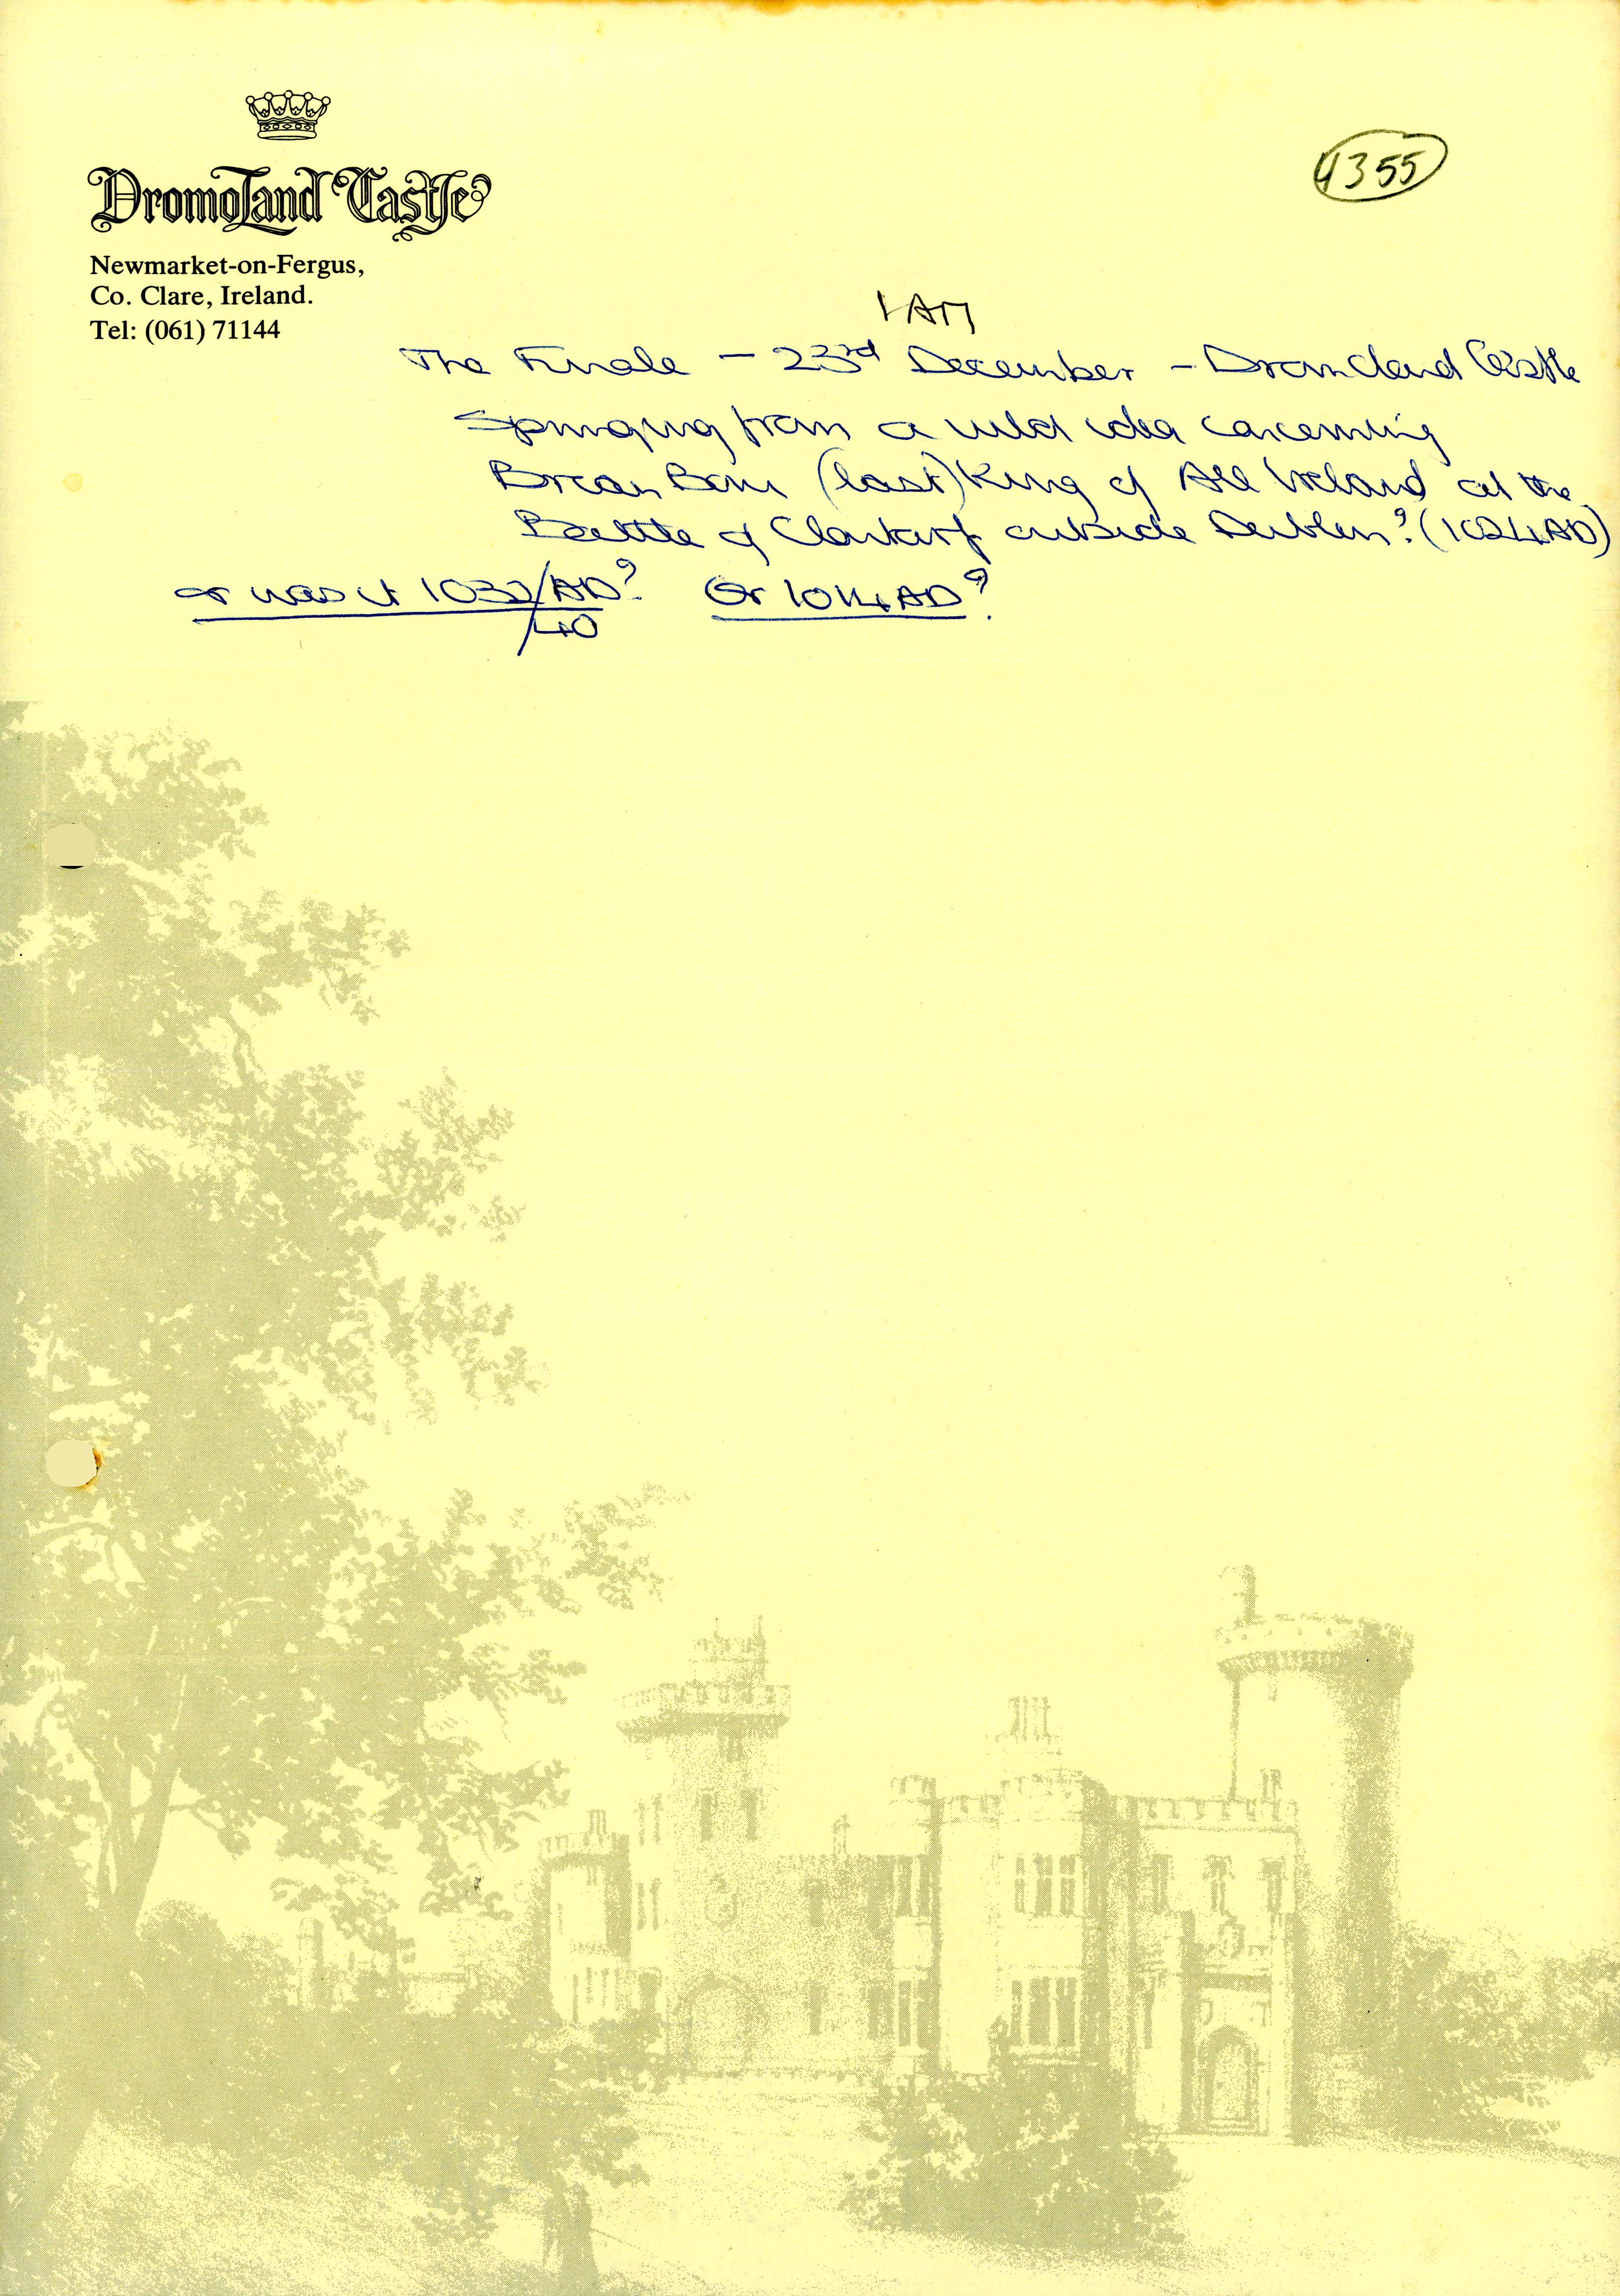 Dromoland Castle
Newmarket-on-Fergus,
Co. Clare, Ireland.
Tel: (061) 71144
4355
The Finale — 23rd December — Dromoland Castle
Springing from a wild idea concerning
Brian Boru (last) King of All Ireland at the
Battle of Clontarf outside Dublin? (1024AD)
or was it 1032/AD? Or 1014AD?
/40